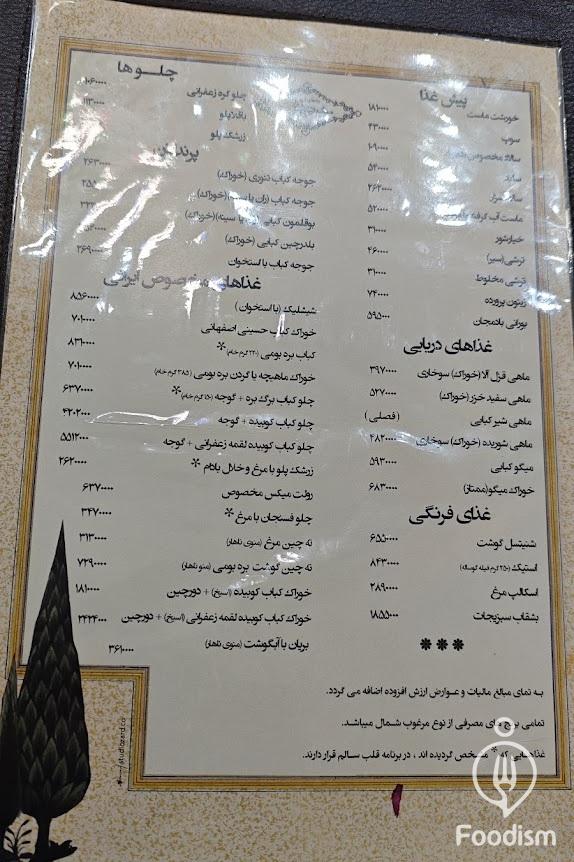 پیش غذا
خورشت ماست ۱۸۱۰۰۰۰
سوپ ۴۳۰۰۰۰
سالاد مخصوص
سالاد ۵۴۰۰۰۰
۲۶۲۰۰۰۰
ماست آب گرفته ۵۲۰۰۰۰
خیارشور ۳۱۰۰۰۰
ترشی (سیر) ۴۶۰۰۰۰
ترشی مخلوط ۳۱۰۰۰۰
زیتون پرورده ۷۴۰۰۰۰
بورانی بادمجان ۵۹۵۰۰۰
غذاهای دریایی
ماهی قزل آلا (خوراک) سوخاری ۳۹۷۰۰۰۰
ماهی سفید خزر (خوراک) ۵۲۷۰۰۰۰
ماهی شیر کبابی ( فصلی )
ماهی شوریده (خوراک) سوخاری ۴۸۲۰۰۰۰
میگو کبابی ۵۹۳۰۰۰۰
خوراک میگو (ممتاز) ۶۸۳۰۰۰۰
غذای فرنگی
شنیتسل گوشت ۶۵۵۰۰۰۰
استیک (۲۵۰ گرم فیله گوساله) ۸۴۳۰۰۰۰
اسکالپ مرغ ۲۸۹۰۰۰۰
بشقاب سبزیجات ۱۸۵۵۰۰۰
***
چلـــو ها
چلو کره زعفرانی ۱۰۶۰۰۰۰
باقلاپلو ۱۱۳۰۰۰۰
زرشک پلو
جوجه کباب تنوری (خوراک) ۲۶۳۰۰۰۰
جوجه کباب (ران یا سینه) (خوراک)
بوقلمون کبابی (ران یا سینه) (خوراک)
بلدرچین کبابی (خوراک)
جوجه کباب با استخوان ۳۶۹۰۰۰۰
غذاهای مخصوص ایرانی
شیشلیک (با استخوان ) ۸۵۶۰۰۰۰
خوراک کباب حسینی اصفهانی ۷۰۱۰۰۰۰
کباب بره بومی (۲۲۰ گرم خام) * ۸۳۱۰۰۰۰
خوراک ماهیچه یا گردن بره بومی (۳۸۵ گرم خام) ۷۰۱۰۰۰۰
چلو کباب برگ بره + گوجه (۱۵۰ گرم خام) * ۶۳۷۰۰۰۰
چلو کباب کوبیده + گوجه ۴۲۰۲۰۰۰
چلو کباب کوبیده لقمه زعفرانی + گوجه ۵۵۱۲۰۰۰
زرشک پلو با مرغ و خلال بادام * ۲۶۲۰۰۰۰
رولت میکس مخصوص ۶۳۷۰۰۰۰
چلو فسنجان با مرغ * ۳۴۷۰۰۰۰
ته چین مرغ (منوی ناهار) ۳۱۳۰۰۰۰
ته چین گوشت بره بومی (منو ناهار) ۷۲۹۰۰۰۰
خوراک کباب کوبیده (۱سیخ) + دورچین ۱۸۱۰۰۰۰
خوراک کباب کوبیده لقمه زعفرانی (۱سیخ) + دورچین ۲۴۲۴۰۰۰
بریان با آبگوشت (منوی ناهار) ۳۶۱۰۰۰۰
به تمای مبالغ مالیات و عوارض ارزش افزوده اضافه می گردد.
تمامی برنج های مصرفی از نوع مرغوب شمال میباشد.
غذاهایی که * مشخص گردیده اند ، در برنامه قلب سالم قرار دارند.
studiozard.co
Foodism